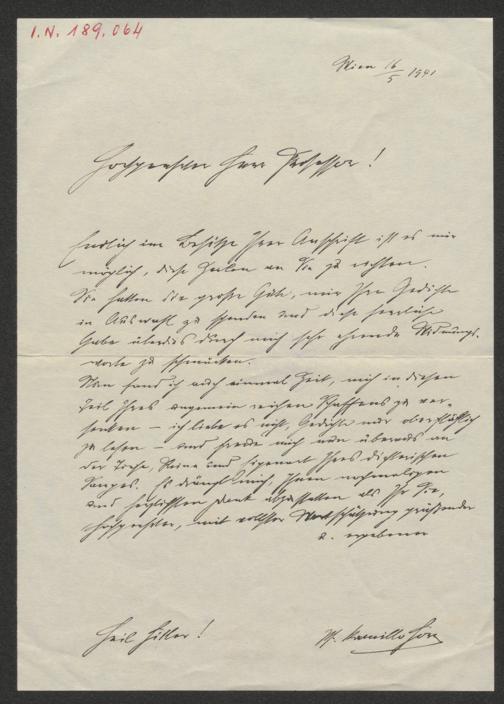 I.N. 189.064
Wien 16/5 1941
Hochverehrter Herr Professor!
Endlich im Besitze Ihrer Anschrift ist es mir
möglich, diese Zeilen an Sie zu richten.
Sie hatten die große Güte, mir Ihre Gedichte
in Auswahl zu spenden und diese herrliche
Gabe überdies durch mich sehr ehrende Widmungs-
worte zu schmücken.
Nun fand ich auch einmal Zeit, mich in diesen
Teil Ihres ungemein reichen Schaffens zu ver-
senken – ich liebe es nicht, Gedichte nur oberflächlich
zu lesen – und freute mich nun überaus an
der Tiefe, Reine und Eigenart Ihres dichterischen
Sanges. Es drängt mich, Ihnen nochmaligen
und herzlichsten Dank abzustatten als Ihr Sie,
Hochverehrter, mit vollster Wertschätzung grüßender
u. ergebener
Heil Hitler!
Kamillo Horn